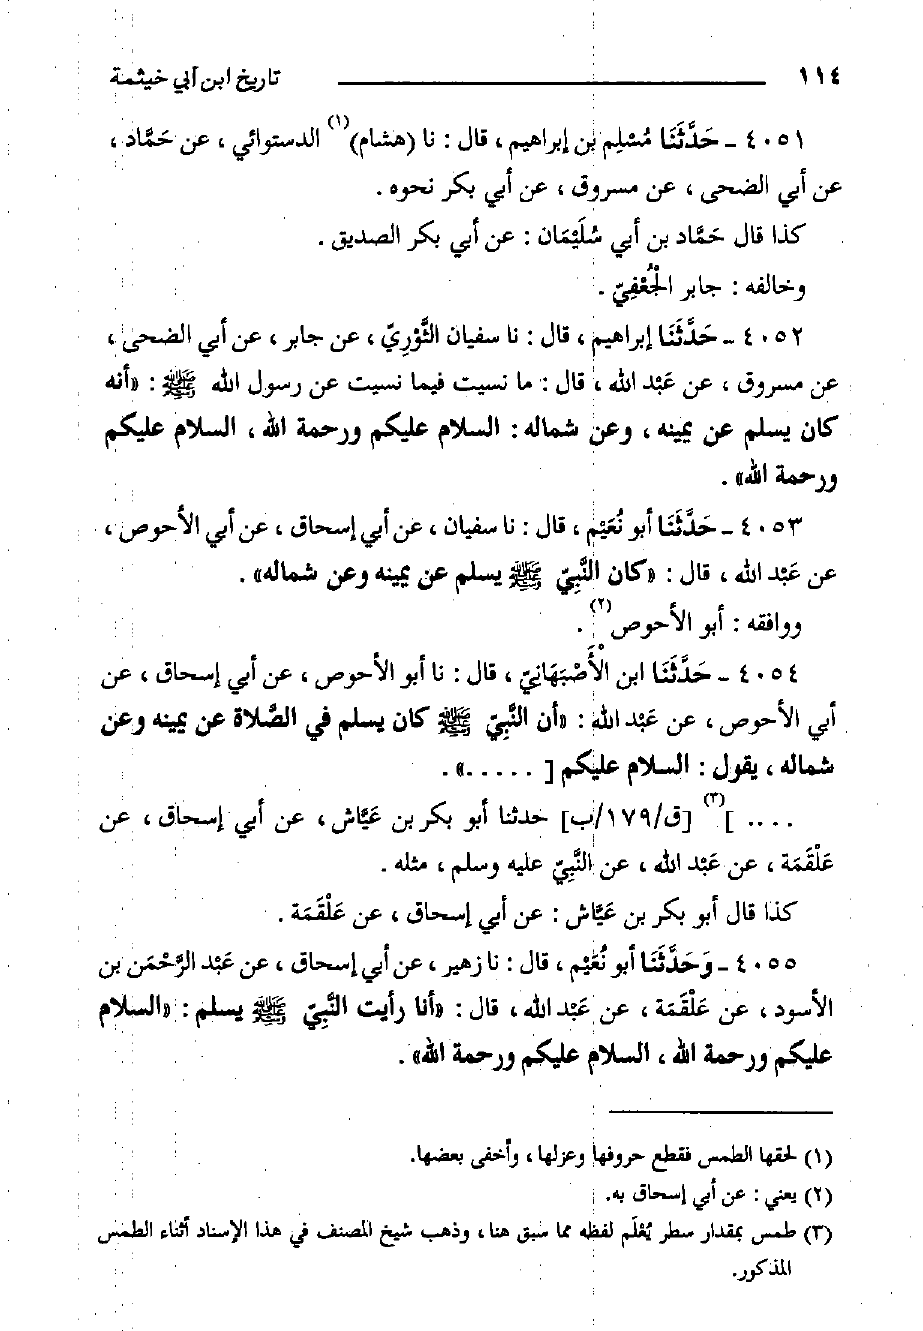 ١١٤ تاريخ ابن أبي خيثمة
٤٠٥١ - حَدَّثَنَا مُسْلِم بن إبراهيم ، قال : نا (هشام)(١) الدستوائي ، عن حَمَّاد ،
عن أبي الضحى ، عن مسروق ، عن أبي بكر نحوه .
كذا قال حَمَّاد بن أبي سُلَيْمَان : عن أبي بكر الصديق .
وخالفه : جابر الْجُعْفِيّ .
٤٠٥٢ - حَدَّثَنَا إبراهيم ، قال : نا سفيان الثَّوْرِيّ ، عن جابر ، عن أبي الضحى ،
عن مسروق ، عن عَبْد الله ، قال : ما نسيت فيما نسيت عن رسول الله ﷺ : «أنه
كان يسلم عن يمينه ، وعن شماله : السلام عليكم ورحمة الله ، السلام عليكم
ورحمة الله» .
٤٠٥٣ - حَدَّثَنَا أبو نُعَيْم ، قال : نا سفيان ، عن أبي إسحاق ، عن أبي الأحوص ،
عن عَبْد الله ، قال : «كان النَّبِيّ ﷺ يسلم عن يمينه وعن شماله» .
ووافقه : أبو الأحوص(٢) .
٤٠٥٤ - حَدَّثَنَا ابن الْأَصْبَهَانِيّ ، قال : نا أبو الأحوص ، عن أبي إسحاق ، عن
أبي الأحوص ، عن عَبْد الله : «أن النَّبِيّ ﷺ كان يسلم في الصَّلاة عن يمينه وعن
شماله ، يقول : السلام عليكم [ .....» .
.... ](٣) [ق/١٧٩/ب] حدثنا أبو بكر بن عَيَّاش ، عن أبي إسحاق ، عن
عَلْقَمَة ، عن عَبْد الله ، عن النَّبِيّ عليه وسلم ، مثله .
كذا قال أبو بكر بن عَيَّاش : عن أبي إسحاق ، عن عَلْقَمَة .
٤٠٥٥ - وَحَدَّثَنَا أبو نُعَيْم ، قال : نا زهير ، عن أبي إسحاق ، عن عَبْد الرَّحْمَن بن
الأسود ، عن عَلْقَمَة ، عن عَبْد الله ، قال : «أنا رأيت النَّبِيّ ﷺ يسلم : «السلام
عليكم ورحمة الله ، السلام عليكم ورحمة الله» .
(١) لحقها الطمس فقطع حروفها وعزلها ، وأخفى بعضها.
(٢) يعني : عن أبي إسحاق به.
(٣) طمس بمقدار سطر يُعْلَم لفظه مما سبق هنا ، وذهب شيخ المصنف في هذا الإسناد أثناء الطمس
المذكور.